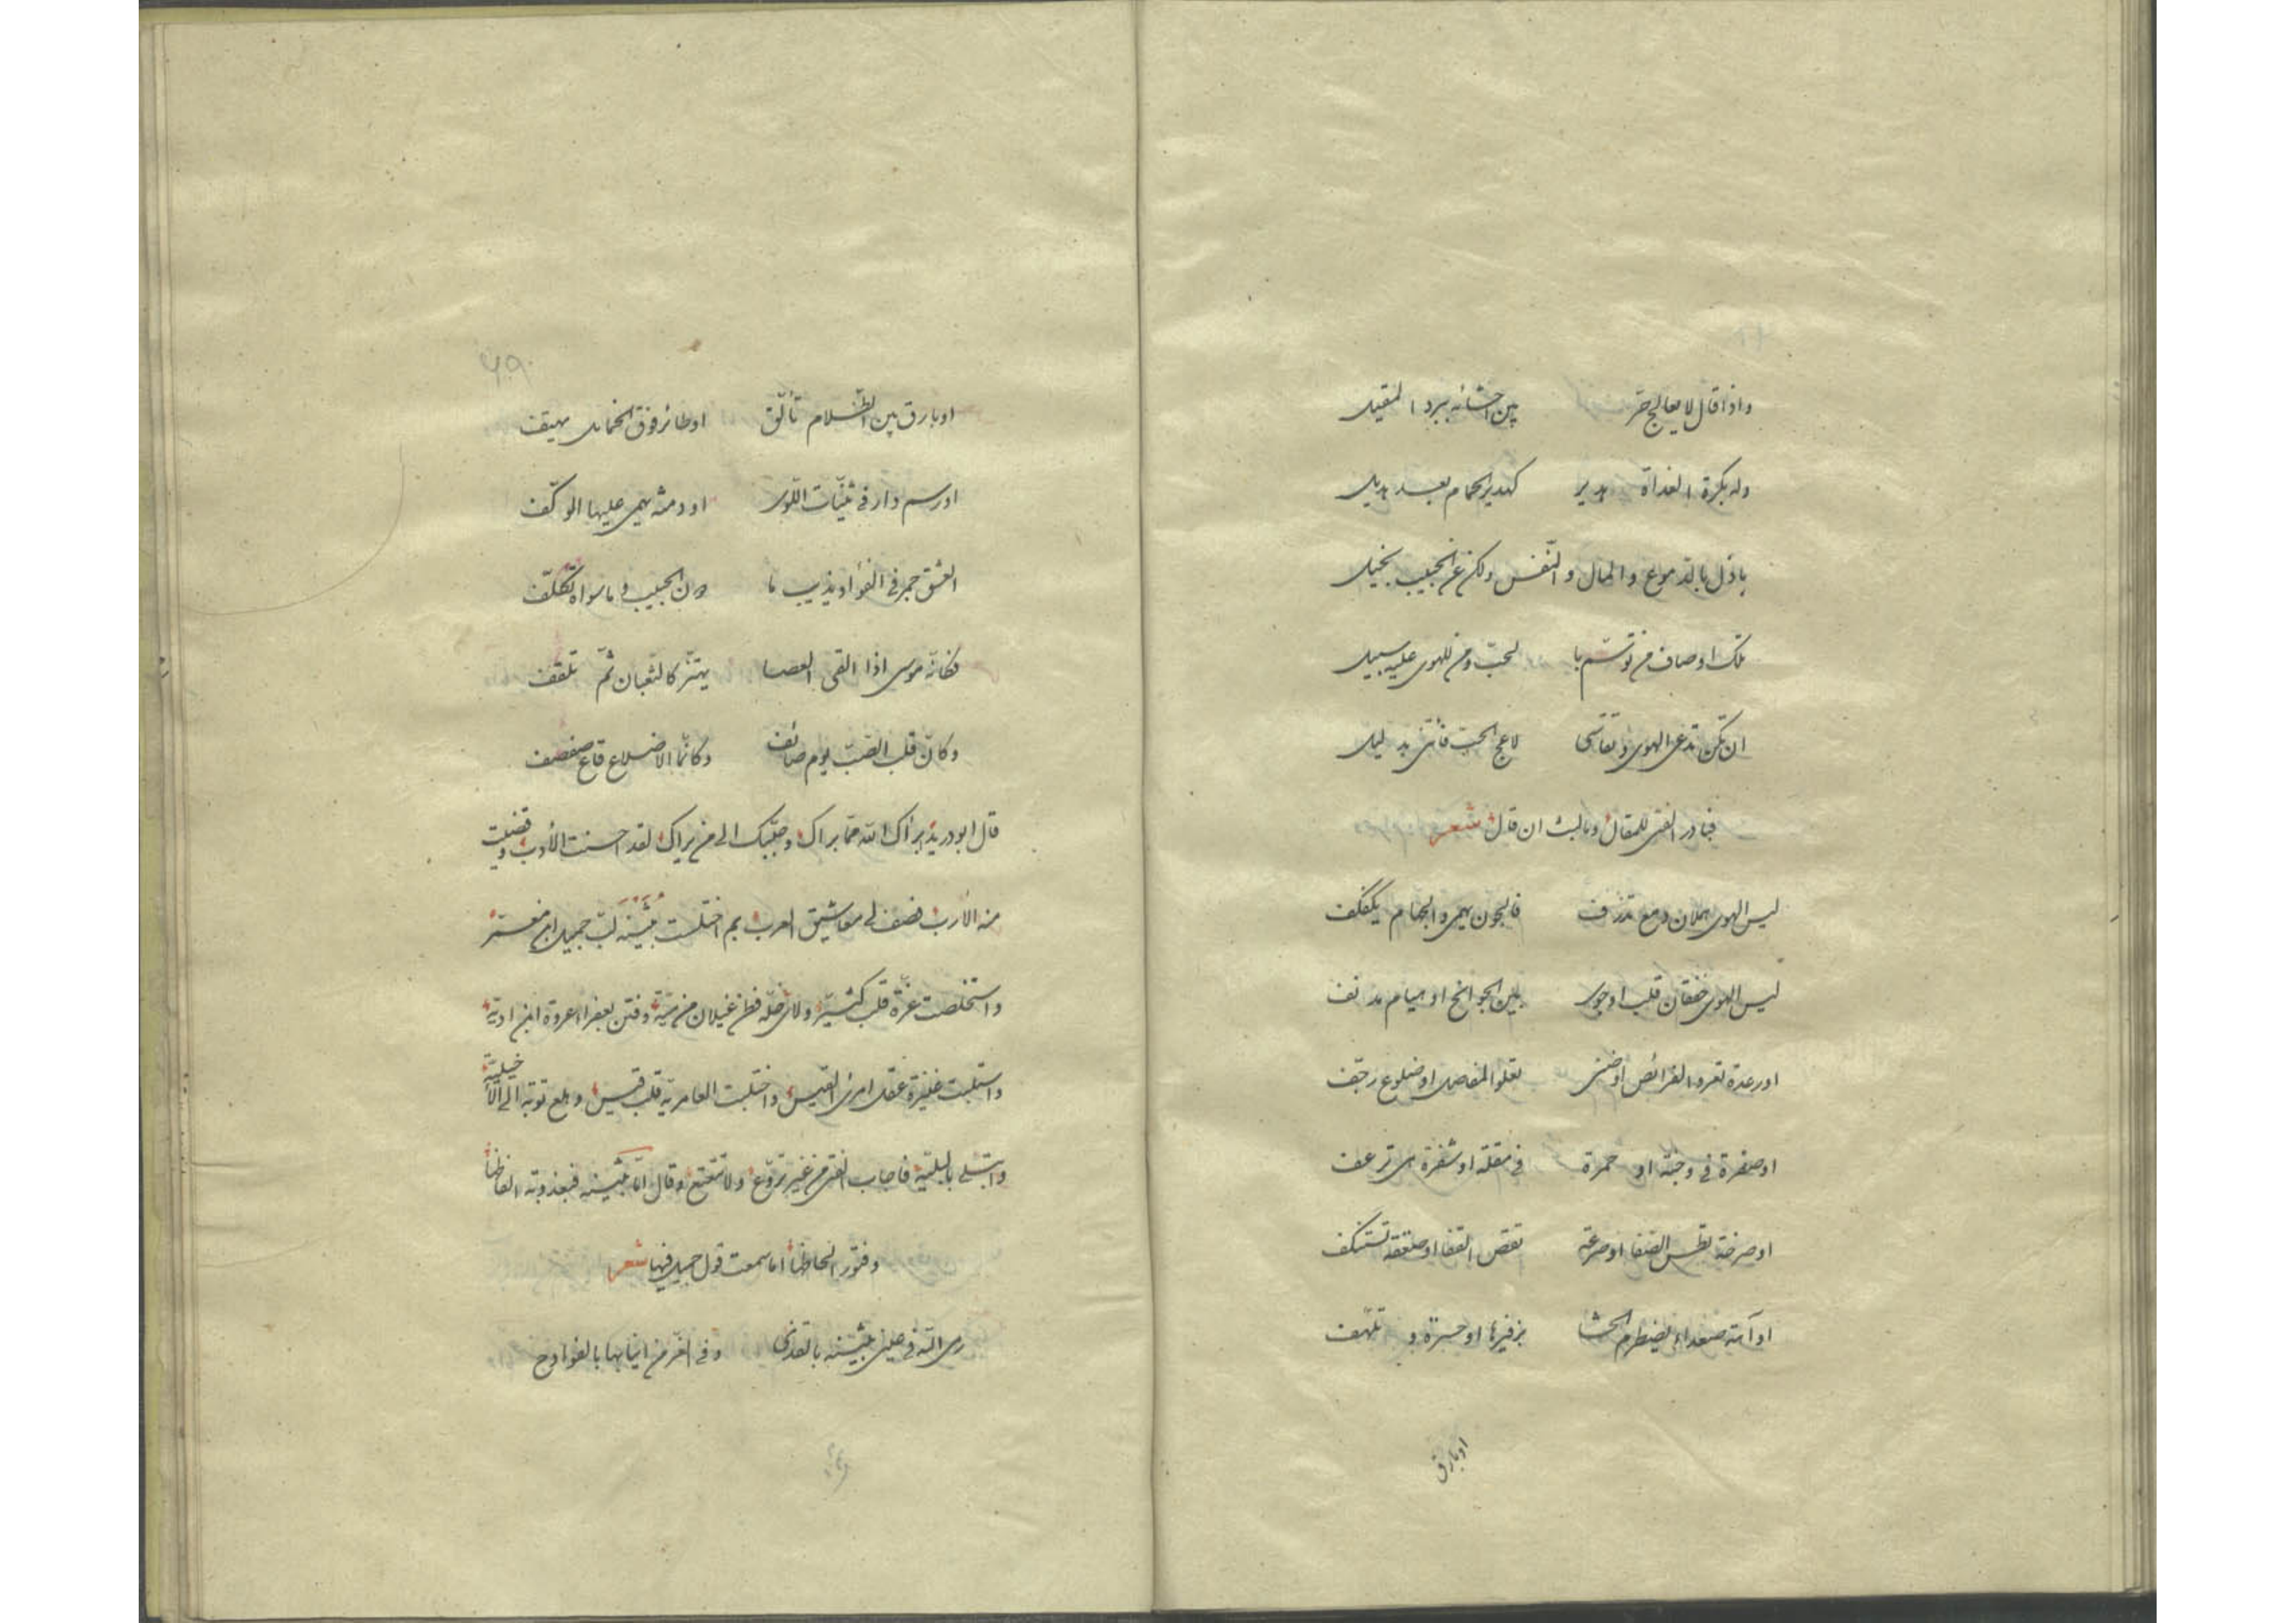 واذا قال لا يعالج حر بين احشائه برد المقيل
وله بكرة الغداة هدير كهدير الحمام بعد هديل
باذل بالدموع والمال والنفس ولكن عن الحبيب بخيل
تلك اوصاف من توسم با لحب ومن للهوى عليه سبيل
ان تكن تدعى الهوى وتقاسى لاعج الحب فأتنى بدليل
فبادر الفتى للمقال وما لبث ان قال شعر
ليس الهوى هملان دمع تذرف فالجون يهمى والجهام يكفكف
ليس الهوى خفقان قلب او جوى بين الجوانح او هيام مدنف
او رعدة تعرو الفرائص او ضنى تعلو المفاصل او ضلوع رجف
او صفرة فى وجنة او حمرة فى مقلة او شفرة هى ترعف
او صرخة تطس الصفا او صرعة تقص القفا او صعقة تستنكف
او آهة صعداء يضطرم الحشا بزفيرها او حسرة و تلهف
او بارق
او بارق بين الظلام تألق او طائر فوق الخمائل يهتف
او رسم دار فى ثنيات اللوى او دمنة يهمى عليها الوكف
العشق جمر فى الفؤاد يذيب ما دون الحبيب وما سواه تكلف
فكانه موسى اذا القى العصا يهتز كالثعبان ثم تلقف
وكان قلب الصب يوم صائف وكانما الاضلاع قاع صفصف
قال ابو دريد ابرأك الله مما براك وحببك الى من يراك لقد احسنت الأدب وقضيت
منه الأرب فصف لى معاشيق العرب بم اختلست بثينة لب جميل ابن معمر
واستخلصت عزة قلب كثير ولاى خلة فطن غيلان من مية وفتن بعفراء عروة ابن اذينة
واستلبت عنيزة عقل امرئ القيس واختلبت العامرية قلب قيس وهلع توبة الى الأخيلية
وابتلى بالبلية فاجاب الفتى من غير تروع ولا تتعتع وقال اما بثينة فبعذوبة الفاظها
وفتور الحاظها اما سمعت قول جميل فيها شعر
رمى الله فى عينى بثينة بالقذى وفى الغر من انيابها بالقوادح